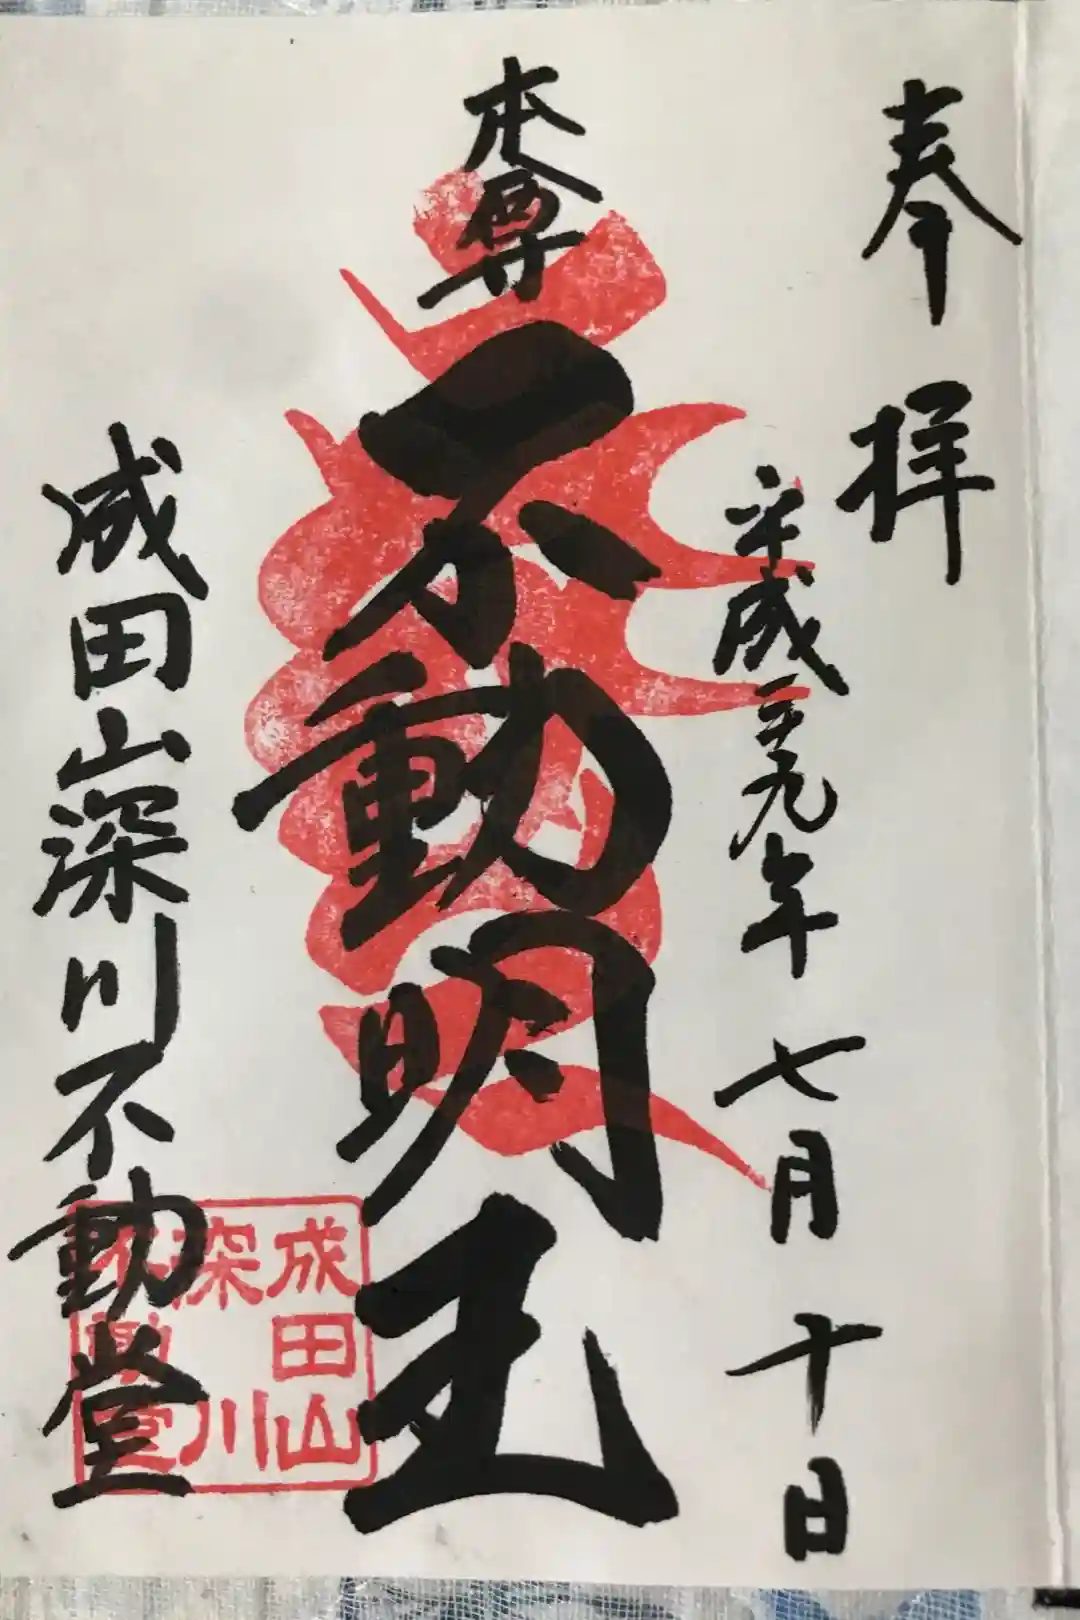 奉拝
平成二九年七月十日
本尊
不動明王
成田山深川不動堂
成田山
深川
不動堂